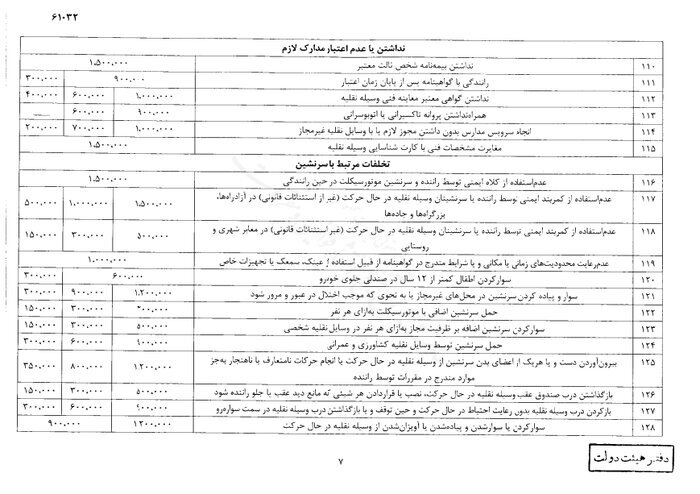 ۶۱۰۳۲
نداشتن یا عدم اعتبار مدارک لازم
۱۱۰ نداشتن بیمه‌نامه شخص ثالث معتبر ۱,۵۰۰,۰۰۰
۱۱۱ رانندگی با گواهینامه پس از پایان زمان اعتبار ۹۰۰,۰۰۰ ۳۰۰,۰۰۰
۱۱۲ نداشتن گواهی معتبر معاینه فنی وسیله نقلیه ۱,۰۰۰,۰۰۰ ۶۰۰,۰۰۰ ۴۰۰,۰۰۰
۱۱۳ همراه‌نداشتن پروانه تاکسیرانی یا اتوبوسرانی ۹۰۰,۰۰۰ ۶۰۰,۰۰۰ __
۱۱۴ ایجاد سرویس مدارس بدون داشتن مجوز لازم یا با وسایل نقلیه غیرمجاز ۱,۰۰۰,۰۰۰ ۷۰۰,۰۰۰ ۲۰۰,۰۰۰
۱۱۵ مغایرت مشخصات فنی با کارت شناسایی وسیله نقلیه ۱,۵۰۰,۰۰۰
تخلفات مرتبط با سرنشین
۱۱۶ عدم‌استفاده از کلاه ایمنی توسط راننده و سرنشین موتورسیکلت در حین رانندگی ۱,۵۰۰,۰۰۰
۱۱۷ عدم‌استفاده از کمربند ایمنی توسط راننده یا سرنشینان وسیله نقلیه در حال حرکت (غیر از استثنائات قانونی) در آزادراه‌ها، ۱,۵۰۰,۰۰۰ ۱,۰۰۰,۰۰۰ ۵۰۰,۰۰۰
بزرگراه‌ها و جاده‌ها
۱۱۸ عدم‌استفاده از کمربند ایمنی توسط راننده یا سرنشینان وسیله نقلیه در حال حرکت (غیر استثنائات قانونی) در معابر شهری و ۵۰۰,۰۰۰ ۳۰۰,۰۰۰ ۱۵۰,۰۰۰
روستایی
۱۱۹ عدم‌رعایت محدودیت‌های زمانی یا مکانی و یا شرایط مندرج در گواهینامه از قبیل استفاده از عینک، سمعک یا تجهیزات خاص ۱,۰۰۰,۰۰۰
۱۲۰ سوارکردن اطفال کمتر از ۱۲ سال در صندلی جلوی خودرو ۶۰۰,۰۰۰ ۳۰۰,۰۰۰
۱۲۱ سوار و پیاده کردن سرنشین در محل‌های غیرمجاز یا به نحوی که موجب اختلال در عبور و مرور شود ۱,۲۰۰,۰۰۰ ۹۰۰,۰۰۰ ۳۰۰,۰۰۰
۱۲۲ حمل سرنشین اضافی با موتورسیکلت به‌ازای هر نفر ۳۰۰,۰۰۰ ۱۵۰,۰۰۰
۱۲۳ سوارکردن سرنشین اضافه بر ظرفیت مجاز به‌ازای هر نفر در وسایل نقلیه شخصی ۵۰۰,۰۰۰ ۳۰۰,۰۰۰ ۱۵۰,۰۰۰
۱۲۴ حمل سرنشین توسط وسایل نقلیه کشاورزی و عمرانی ۶۰۰,۰۰۰ ۳۰۰,۰۰۰
۱۲۵ بیرون‌آوردن دست و یا هریک از اعضای بدن سرنشین از وسیله نقلیه در حال حرکت یا انجام حرکات نامتعارف یا ناهنجار به‌جز ۱,۲۰۰,۰۰۰ ۸۰۰,۰۰۰ ۳۵۰,۰۰۰
موارد مندرج در مقررات توسط راننده
۱۲۶ بازگذاشتن درب صندوق عقب وسیله نقلیه در حال حرکت، نصب یا قراردادن هر شیئی که مانع دید عقب یا جلو راننده شود ۵۰۰,۰۰۰ ۳۰۰,۰۰۰ ۱۵۰,۰۰۰
۱۲۷ بازکردن درب وسیله نقلیه بدون رعایت احتیاط در حال حرکت و حین توقف و یا بازگذاشتن درب وسیله نقلیه در سمت سواره‌رو ۶۰۰,۰۰۰ ۳۰۰,۰۰۰
۱۲۸ سوارکردن یا سوارشدن و پیاده‌شدن یا آویزان‌شدن از وسیله نقلیه در حال حرکت ۱,۲۰۰,۰۰۰ ۹۰۰,۰۰۰
۷
دفتر هیئت دولت